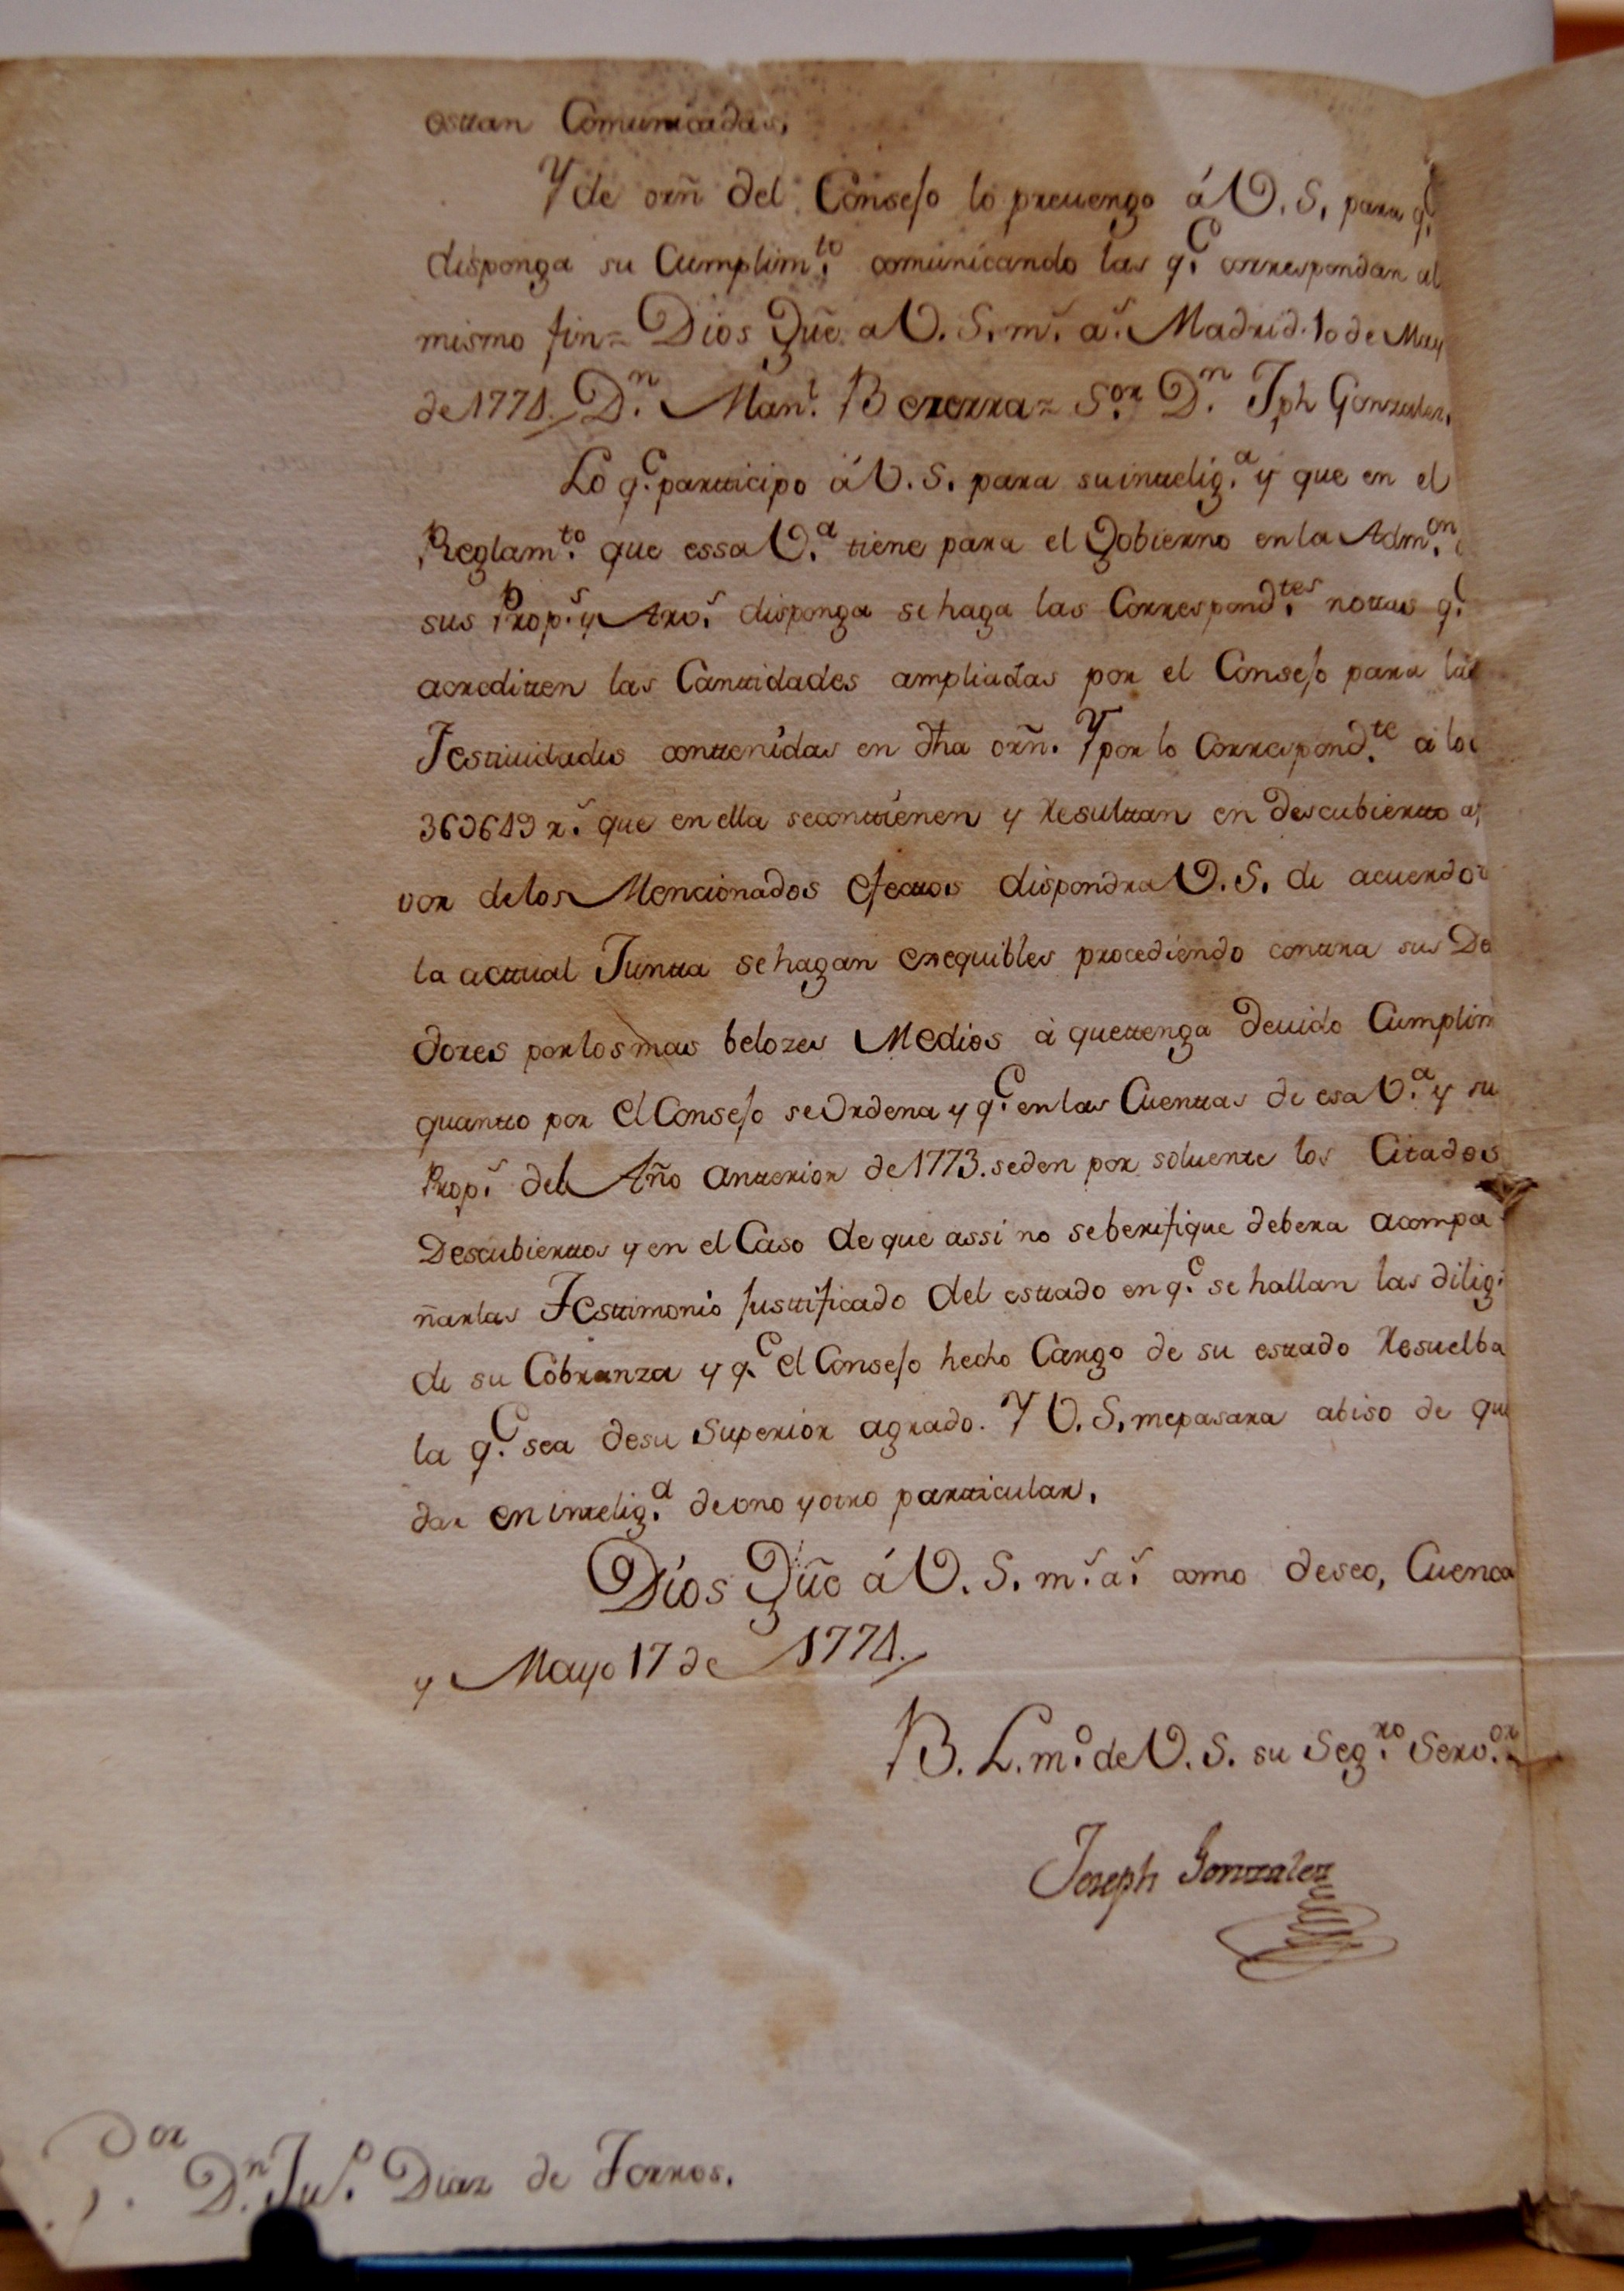 estan Comunicadas.
Y de orñ del Consejo lo prevengo á V. S. para q.e
disponga su Cumplim.to comunicando las q.e correspondan al
mismo fin = Dios Gũe a V. S. m.s a.s Madrid. 10 de May
de 1774. D.n Man.l Bezerra = S.or D.n Jph Gonzalez.
Lo q.e partticipo á V. S. para su inttelig.a y que en el
Reglam.to que essa V.a tiene para el Gobierno en la Adm.on
sus Prop.s y Arv.s disponga se haga las Correspond.tes nottas q.e
acreditten las Canttidades ampliadas por el Consejo para las
Festtividades conttenidas en dha orñ. Y por lo Correspond.te a los
36d649 r.s que en ella se conttienen y Resulttan en Descubiertto a
vor de los Mencionados efecttos dispondra V. S. de acuerdo
la acttual Juntta se hagan exequibles procediendo conttra sus De
dores por los mas belozes Medios à que ttenga devido Cumplim
quantto por el Consejo se Ordena y q.e en las Cuenttas de esa V.a y su
Prop.s del Año antterior de 1773. se den por solvente los Citados
Descubierttos y en el Caso de que assi no se berifique debera acompa
ñarlas Testtimonio justtificado del esttado en q.e se hallan las dilig.s
de su Cobranza y q.e el Consejo hecho Cargo de su esttado Resuelba
la q.e sea de su Superior agrado. Y V. S. me pasara abiso de que
dar en inttelig.a de uno y otro partticular.
Dios Gũe á V. S. m.s a.s como deseo, Cuenca
y Mayo 17 de 1774.
B. L. m.o de V. S. su Seg.ro Serv.or
Joseph Gonzalez
S.or D.n Ju.o Diaz de Torres.